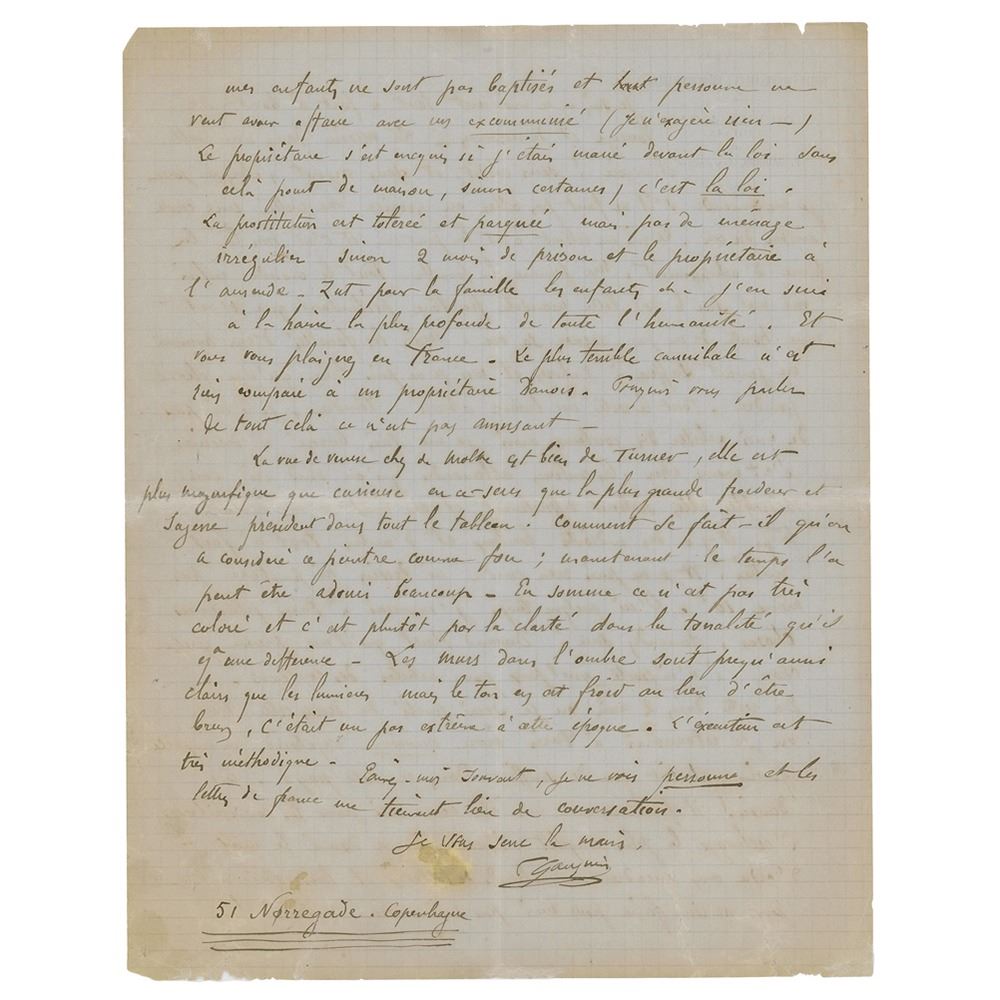 mes enfants ne sont pas baptisés et personne ne
veut avoir affaire avec un excommunié (je n'exagère rien —)
Le propriétaire s'est enquis si j'étais marié devant la loi sans
celà point de maison, sinon certaines, c'est la loi.
La prostitution est tolerée et parquée mais pas de ménage
irrégulier sinon 2 mois de prison et le propriétaire à
l'amende - Zut pour la famille les enfants etc - j'en suis
à la haine la plus profonde de toute l'humanité. Et
vous vous plaignez en France - Le plus terrible cannibale n'est
rien comparé à un propriétaire Danois. vous parler
de tout celà ce n'est pas amusant -
La vue de venise chez de Moltke est bien de Turner, elle est
plus magnifique que curieuse en ce sens que la plus grande froideur et
sagesse président dans tout le tableau. Comment se fait-il qu'on
a considéré ce peintre comme fou ; maintenant le temps l'a
peut être adouci beaucoup - En somme ce n'est pas très
coloré et c'est plutôt par la clarté dans la tonalité qu'il
y a une différence - Les murs dans l'ombre sont presqu'aussi
clairs que les lumieres mais le ton en est froid au lieu d'être
brun, c'était un pas extrême à cette époque. L'exécution est
très méthodique -
Ecrivez-moi souvent, je ne vois personne et les
lettres de france me tiennent lieu de conversation.
Je vous serre la main,
Gauguin
51 Nørregade. Copenhague